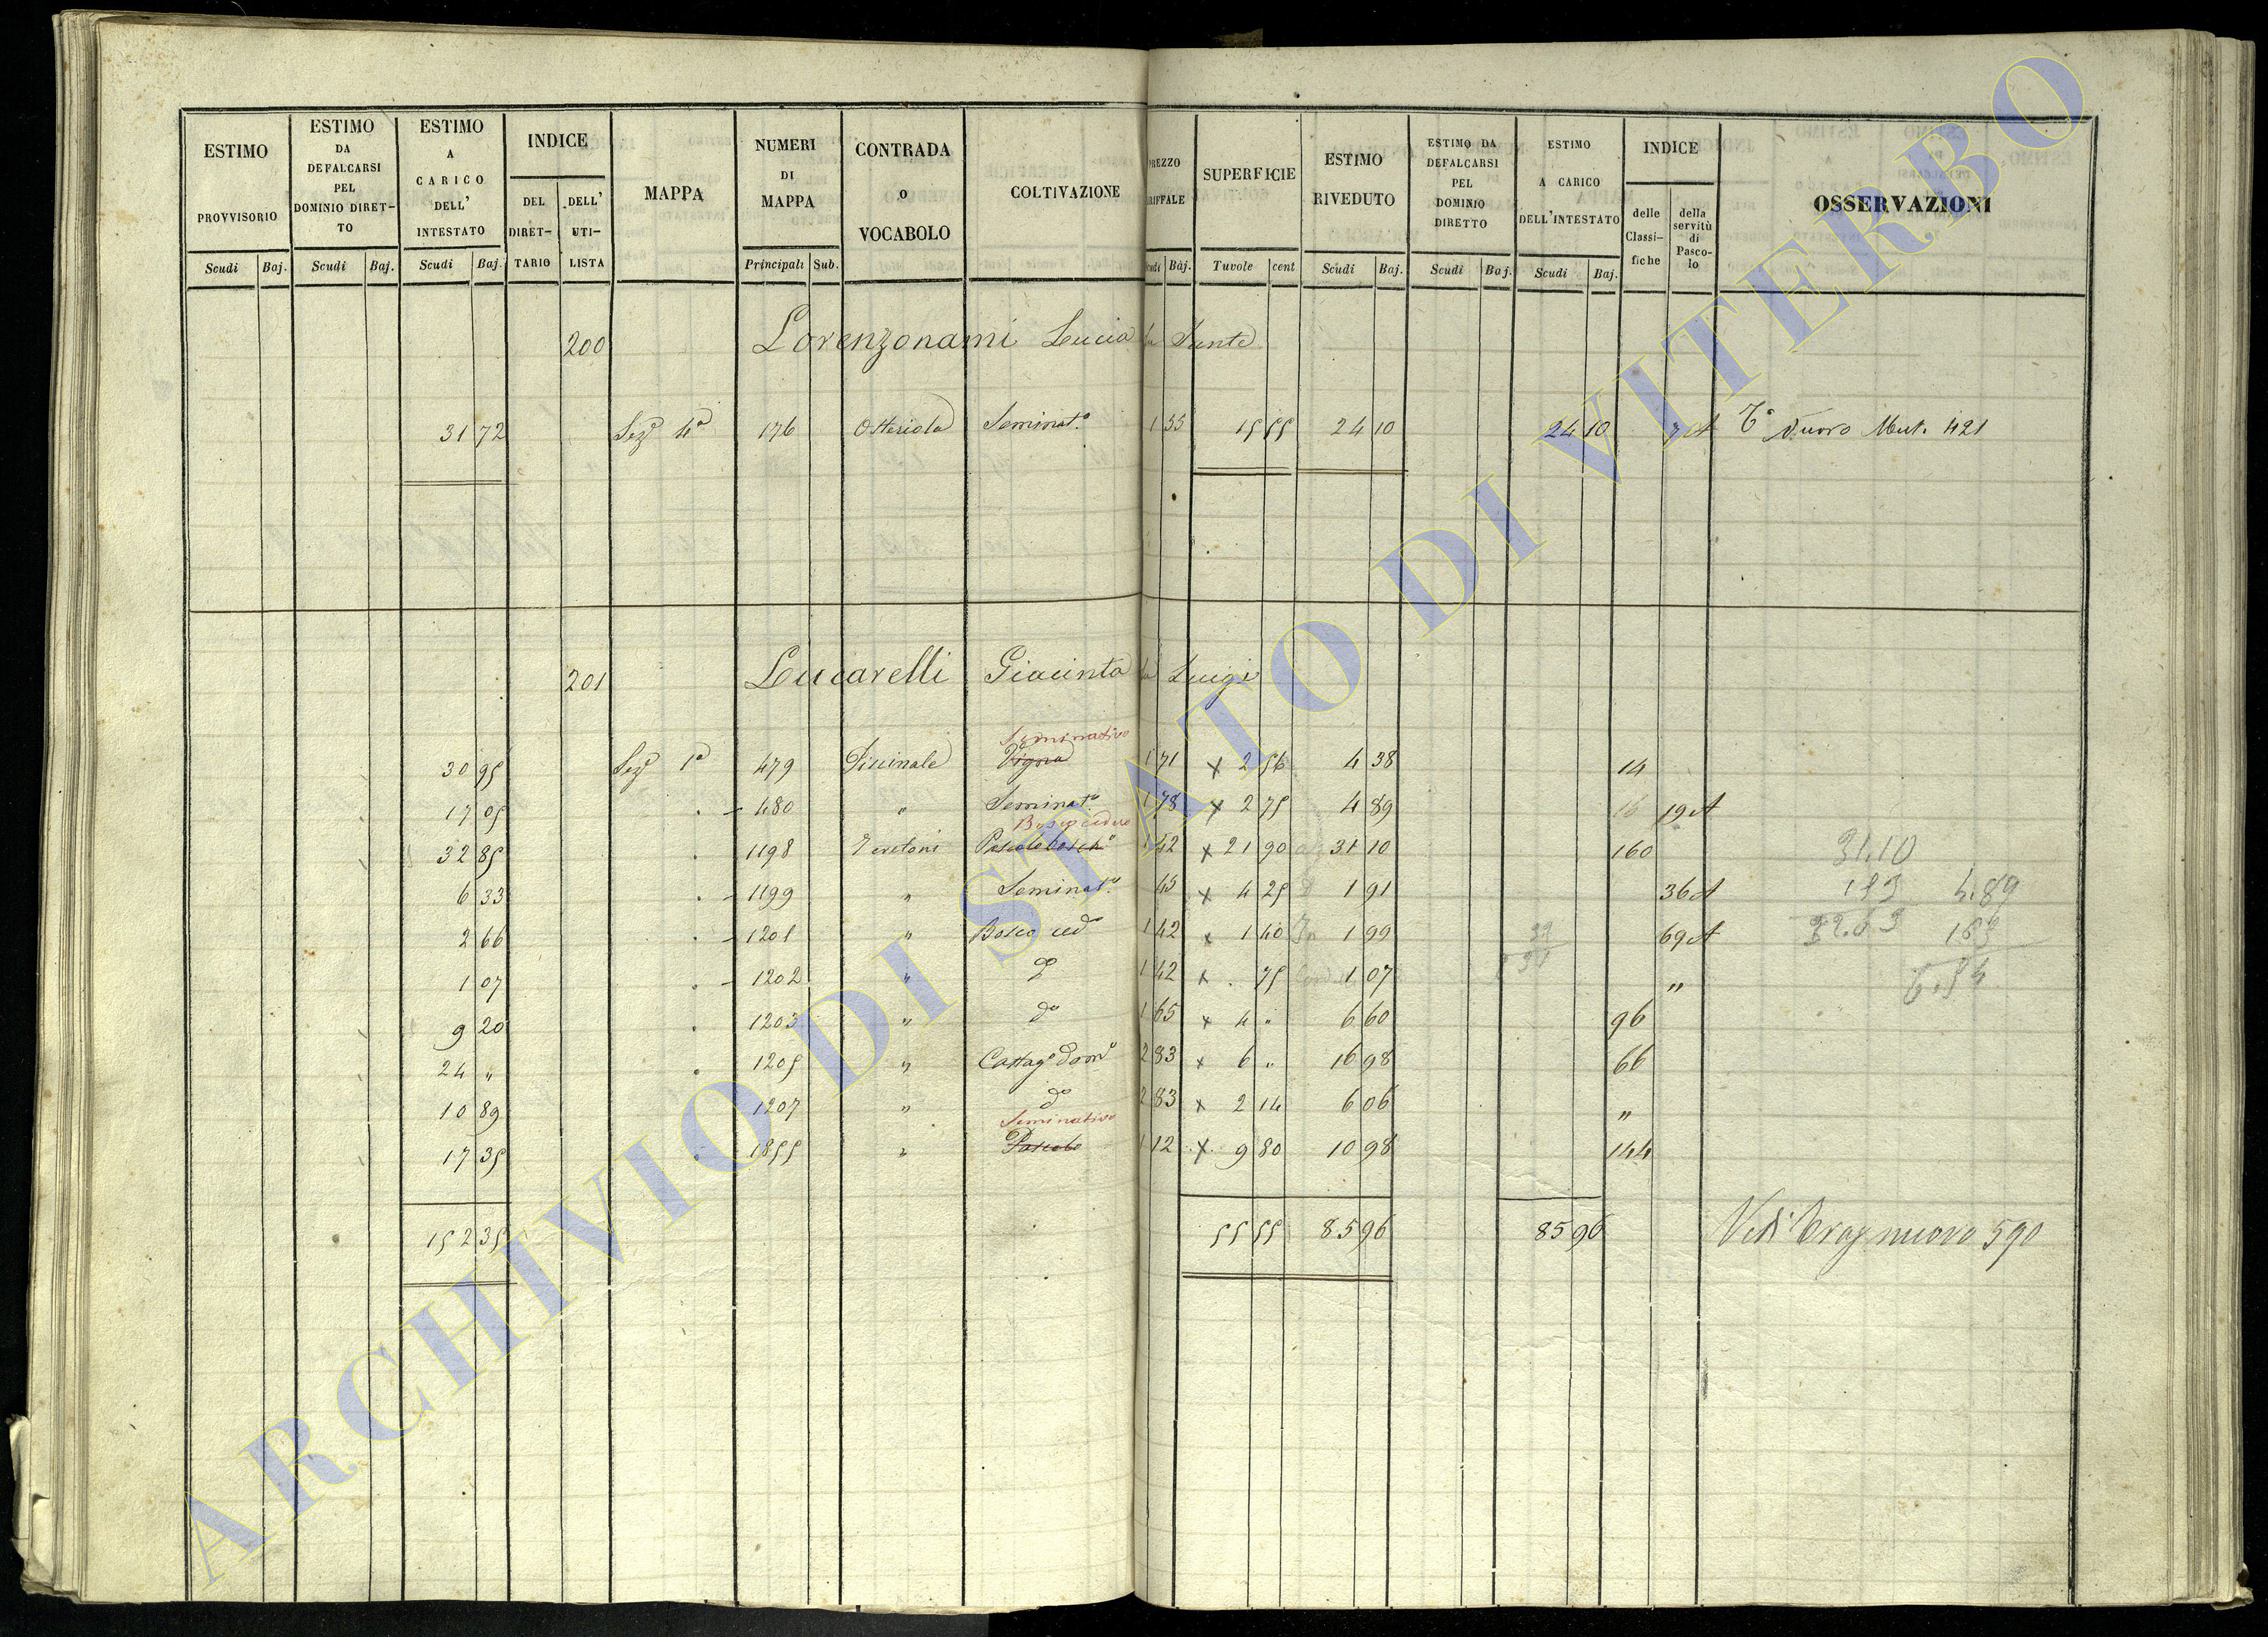 ESTIMO PROVVISORIO Scudi Baj.
ESTIMO DA DEFALCARSI PEL DOMINIO DIRET-TO Scudi Baj.
ESTIMO A CARICO DELL' INTESTATO Scudi Baj.
INDICE DEL DIRET-TARIO DELL' UTI-LISTA
MAPPA
NUMERI DI MAPPA Principali Sub.
CONTRADA o VOCABOLO
COLTIVAZIONE
PREZZO RIFFALE Scudi Baj.
SUPERFICIE Tavole cent
ESTIMO RIVEDUTO Scudi Baj.
ESTIMO DA DEFALCARSI PEL DOMINIO DIRETTO Scudi Baj.
ESTIMO A CARICO DELL'INTESTATO Scudi Baj.
INDICE delle Classi-fiche della servitù di Pasco-lo
OSSERVAZIONI
200 Lorenzonami Lucia Sante
31 72 Sezᵉ 4ª 176 Osteriola Seminatº 1 55 15 55 24 10 24 10 7 A Tº Nuovo Mut. 421
201 Lucarelli Giacinta Luigi
Seminativo
30 95 Sezᵉ 1ª 479 Piscinale Vigna 1 71 x 2 56 4 38 14
17 05 480 " Seminatº 1 78 x 2 75 4 89 16 19 A
Bosco ceduo
32 85 1198 Pascolo boschº 1 42 x 21 90 31 10 160 31.10
6 33 1199 " Seminatº 45 x 4 25 1 91 36 A 153 4.89
2 66 1201 " Bosco cedº 1 42 x 1 40 1 99 69 A 32.63 153
1 07 1202 " dº 1 42 x . 75 1 07 "
9 20 1203 " dº 1 65 x 4 " 6 60 96
24 " 1205 " Castagº domº 2 83 x 6 " 16 98 66
10 89 1207 " dº 2 83 x 2 14 6 06 "
Seminativo
17 35 1855 " Pascolo 1 12 x 9 80 10 98 144
152 35 55 55 85 96 85 96 Vedi nuovo 590
ARCHIVIO DI STATO DI VITERBO